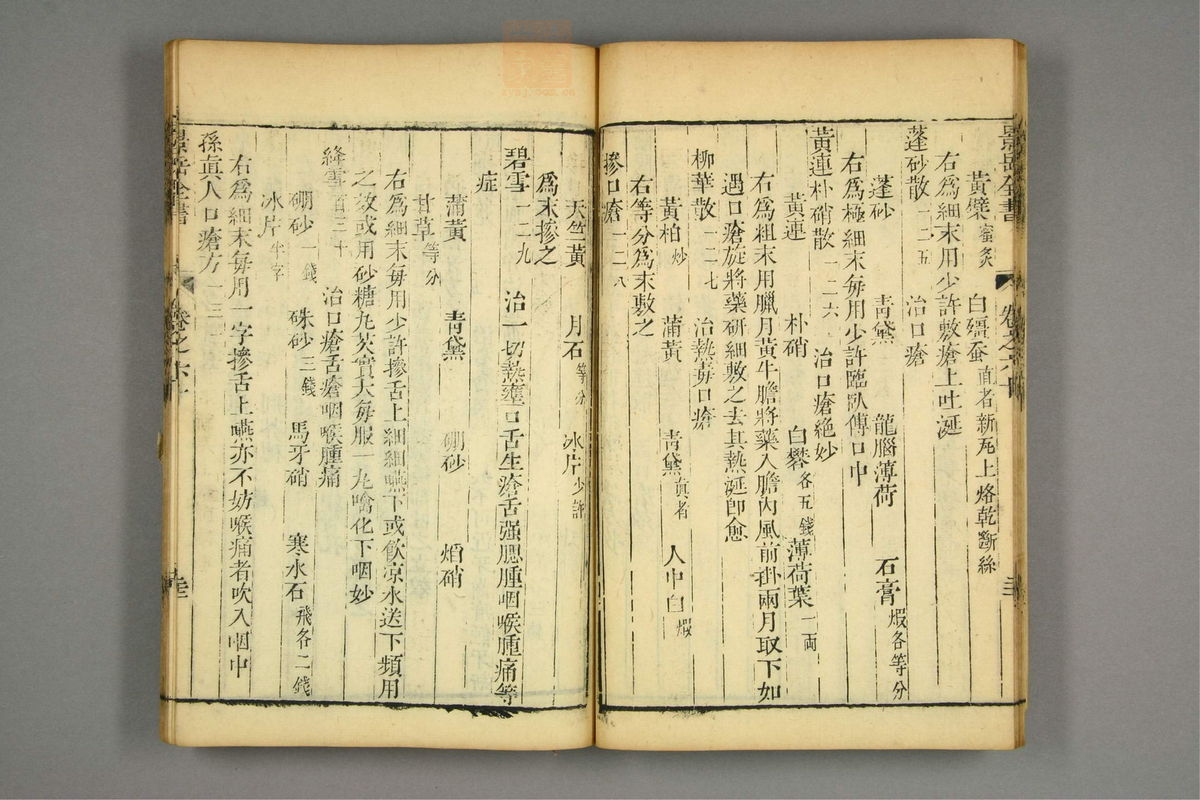 景岳全書
卷之六十
黃蘗蜜炙 白殭蚕直者新瓦上烙乾斷絲
右爲細末用少許敷瘡上吐涎
蓬砂散一二五 治口瘡
蓬砂 青黛 龍腦薄荷 石膏煆各等分
右爲極細末每用少許臨臥傅口中
黃連朴硝散一二六 治口瘡絶妙
黃連 朴硝 白礬各五錢 薄荷葉一兩
右爲粗末用臘月黃牛膽將藥入膽內風前掛兩月取下如
遇口瘡旋將藥研細敷之去其熱涎卽愈
柳華散一二七 治熱毒口瘡
黃柏炒 蒲黃 青黛眞者 人中白煆
右等分爲末敷之
摻口瘡一二八
天竺黃 月石等分 冰片少許
爲末摻之
碧雪一二九 治一切熱壅口舌生瘡舌强腮腫咽喉腫痛等
症
蒲黃 青黛 硼砂 焇硝
甘草等分
右爲細末每用少許摻舌上細細嚥下或飮凉水送下頻用
之效或用砂糖丸芡實大每服一丸噙化下咽妙
絳雪百三十 治口瘡舌瘡咽喉腫痛
硼砂一錢 硃砂三錢 馬牙硝 寒水石飛各二錢
冰片半字
右爲細末每用一字摻舌上嚥亦不妨喉痛者吹入咽中
孫眞人口瘡方一三一
景岳全書
卷之六十